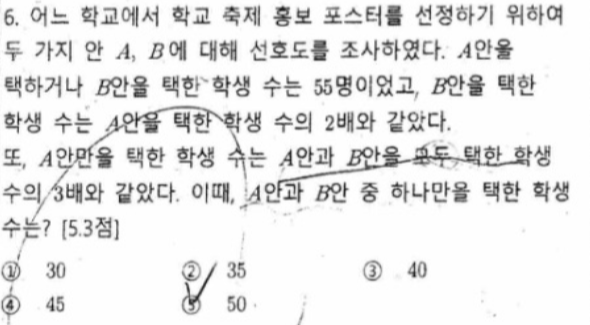 6. 어느 학교에서 학교 축제 홍보 포스터를 선정하기 위하여
두 가지 안 A, B에 대해 선호도를 조사하였다. A안을
택하거나 B안을 택한 학생 수는 55명이었고, B안을 택한
학생 수는 A안을 택한 학생 수의 2배와 같았다.
또, A안만을 택한 학생 수는 A안과 B안을 모두 택한 학생
수의 3배와 같았다. 이때, A안과 B안 중 하나만을 택한 학생
수는? [5.3점]
① 30 ② 35 ③ 40
④ 45 ⑤ 50